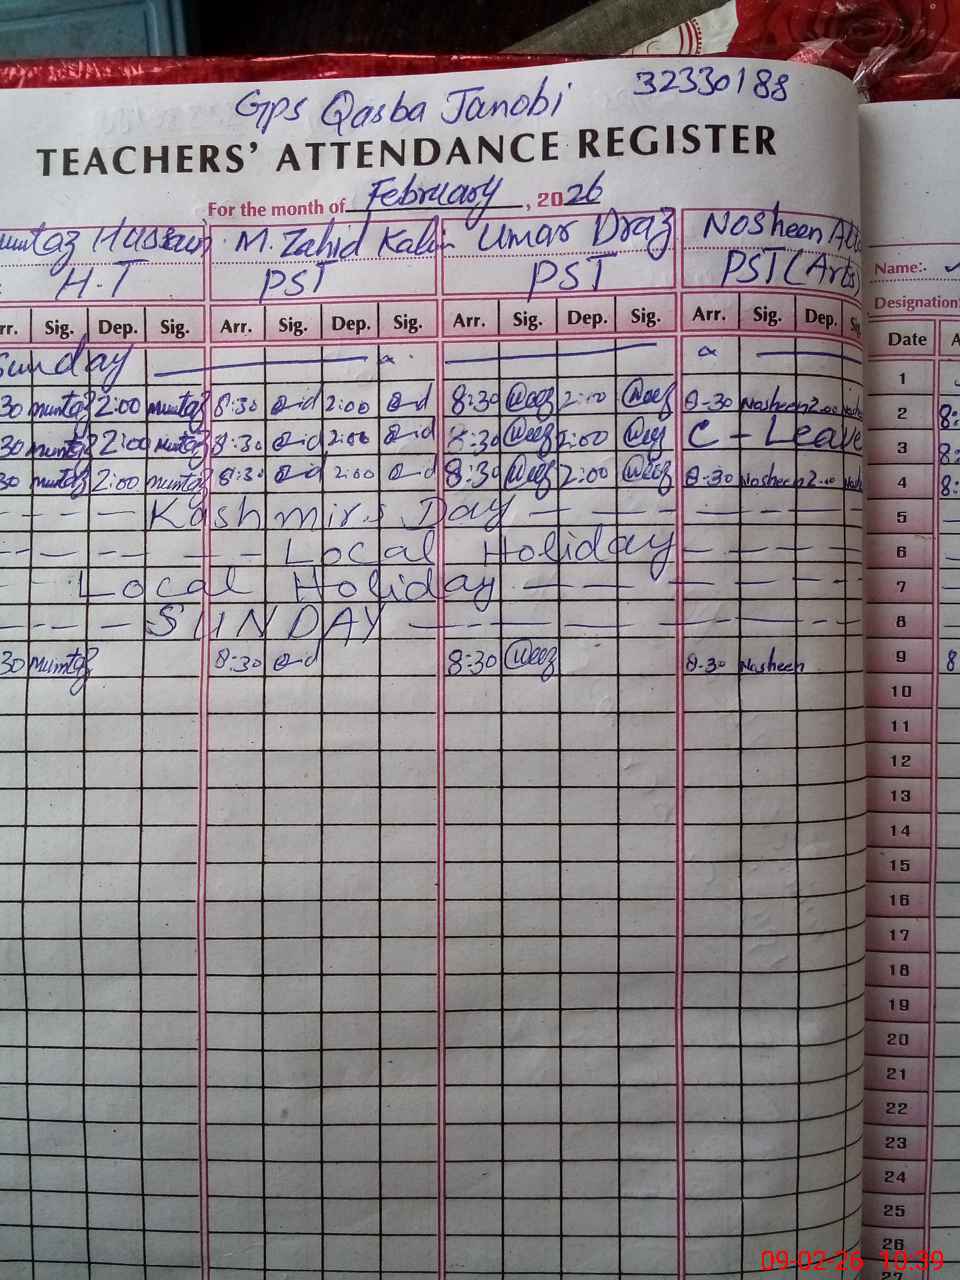 32330188
Gps Qasba Janobi
TEACHERS' ATTENDANCE REGISTER
For the month of February, 2026
Hassain M. Zahid Umar Draz Nosheen
H.T PST PST PST (Arts)
Name:-
Designation:
Sig. Dep. Sig. Arr. Sig. Dep. Sig. Arr. Sig. Dep. Sig. Arr. Sig. Dep. Date
Sunday 1
30 mumtaz 2:00 mumtaz 8:30 2:00 8:30 2:00 8-30 Nosheen 2.00 2 8:
30 mumtaz 2:00 mumtaz 8:30 2:00 8:30 2:00 C-Leave 3 8:
30 mumtaz 2:00 mumtaz 8:30 2:00 8:30 2:00 8-30 Nosheen 2.00 4 8:
Kashmir.s Day 5
Local Holiday 6
Local Holiday 7
SUNDAY 8
30 Mumtaz 8:30 8:30 8-30 Nosheen 9 8
10
11
12
13
14
15
16
17
18
19
20
21
22
23
24
25
26
09-02-26 10:39